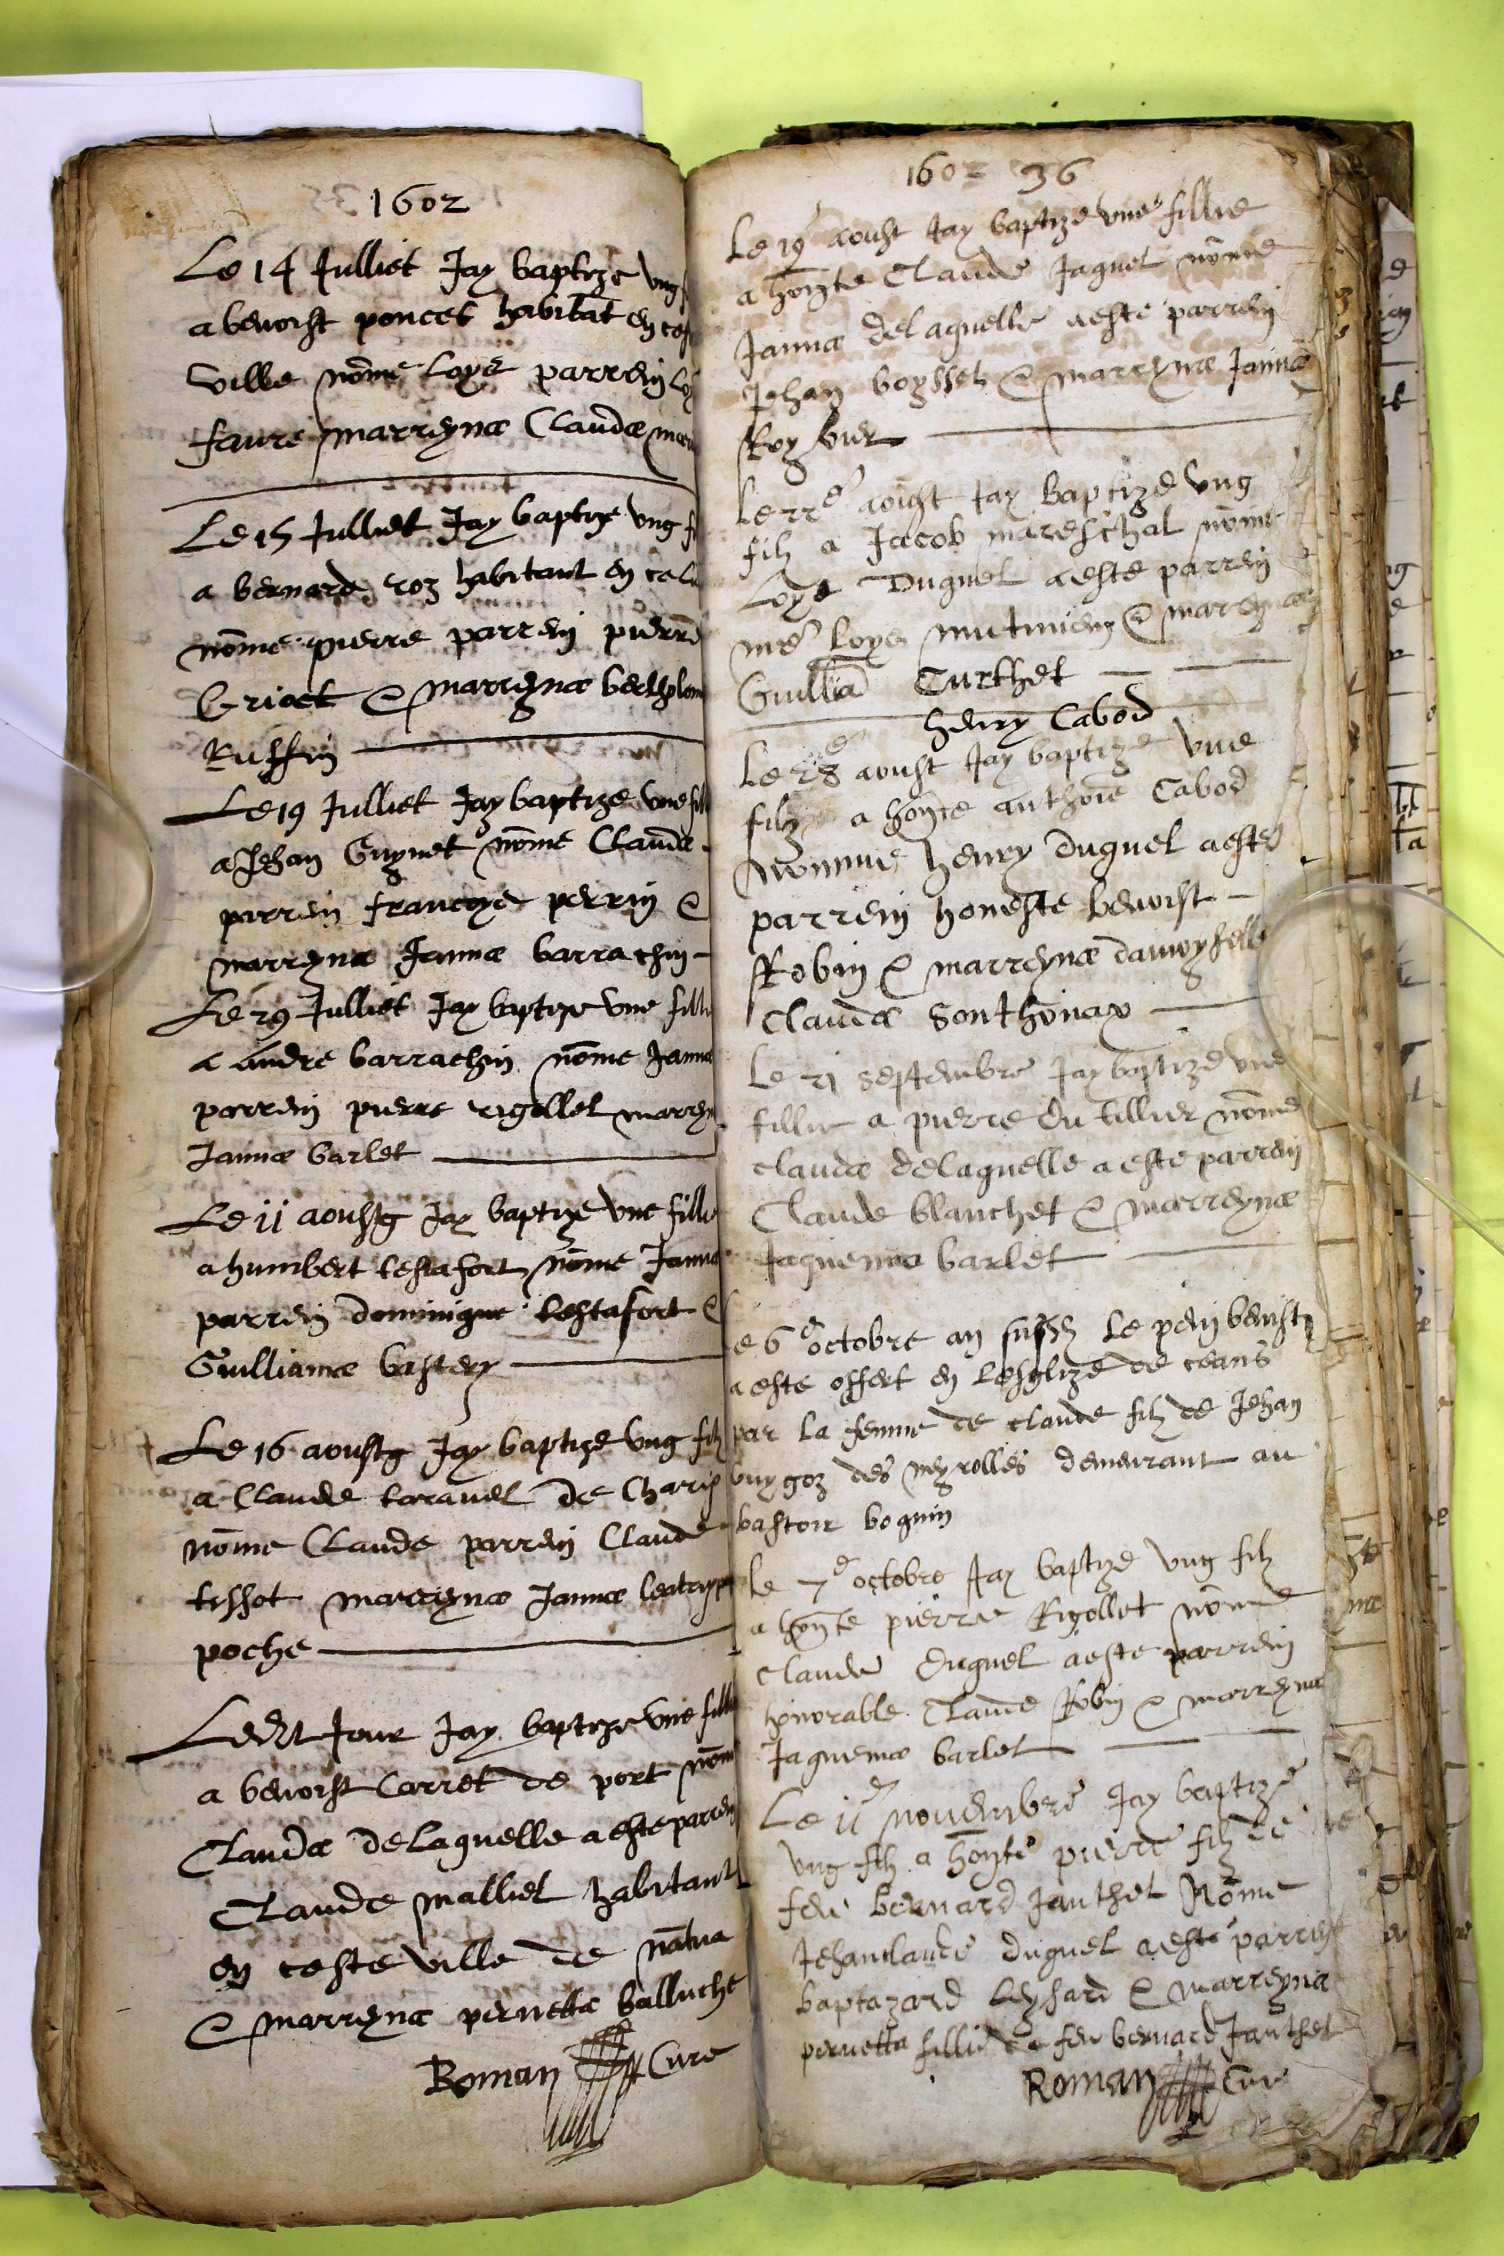 1602
Le 14 Julliet Jay baptize ung
a benoist poncet habitāt en ces
ville nōme Loys parrein Loy
faure marreynæ Claudæ
Le 15 Julliet Jay baptize ung
a bernard roz habitant en
nōme pierre parrein pierre
Griact & marreynæ
Ruffin
Le 19 Julliet Jay baptize une fill
a Jehan Guynet nōme Claudæ
parrein francoys perrin &
marreynæ Jannæ barrachin
Le 29 Julliet Jay baptize une filli
a Andre barrachin nōme Jannæ
parrein pierre rigollet marrey
Jannæ barlet
Le 11 aoust Jay baptize une fillie
a humbert testafort nōme Jannæ
parrein dominique testafort &
Guilliamæ
Le 16 aoust Jay baptize ung filz
a Claude taravel de Charix
nōme Claude parrein Claude
tissot marreynæ Jannæ
poche
Ledit Jour Jay baptize une fille
a benoist Carret de port nōm
Claudæ delaquelle a este parrein
Claude malliet habitant
en ceste ville de nātua
& marreynæ pernettæ balluche
Roman Cure
1602 36
Le 19 aoust Jay baptize une fillie
a hoñte Claude Jaquet nōme
Jannæ delaquelle a este parrein
Jehan & marreynæ Jannæ
Le 22e aoust Jay Baptize ung
filz a Jacob mareschal nōme
Loys Duquel a este parrein
me Loys & marreynæ
Guilliā Curthet
henry Cabod
Le 28e aoust Jay baptize une
filz a hoñte anthoīe Cabod
Nomme henry duquel a este
parrein honeste benoist
Robin & marreynæ damoyselle
Claudæ Sonthōnax
Le 21 septembre Jay baptize une
fillie a pierre du tillier nōme
claudæ delaquelle a este parrein
Claude blanchet & marreynæ
Jaquemæ barlet
Le 6e octobre an le pein benist
a este offert en lesglize de ceans
par la femme de claude filz de Jehan
des neyrolles demeurant au
Le 7e octobre Jay baptize ung filz
a hoñte pierre Rigollet nōme
Claude duquel a este parrein
honorable Claude Robin & marreynæ
Jaquemæ barlet
Le 11e novembre Jay baptize
ung filz a hoñte pierre filz de
feu bernard Janthet Nōme
Jehanclaude duquel a este parrein
baptazard Leysard & marreynæ
pernetta fillie de feu bernard Janthet
Roman Cure